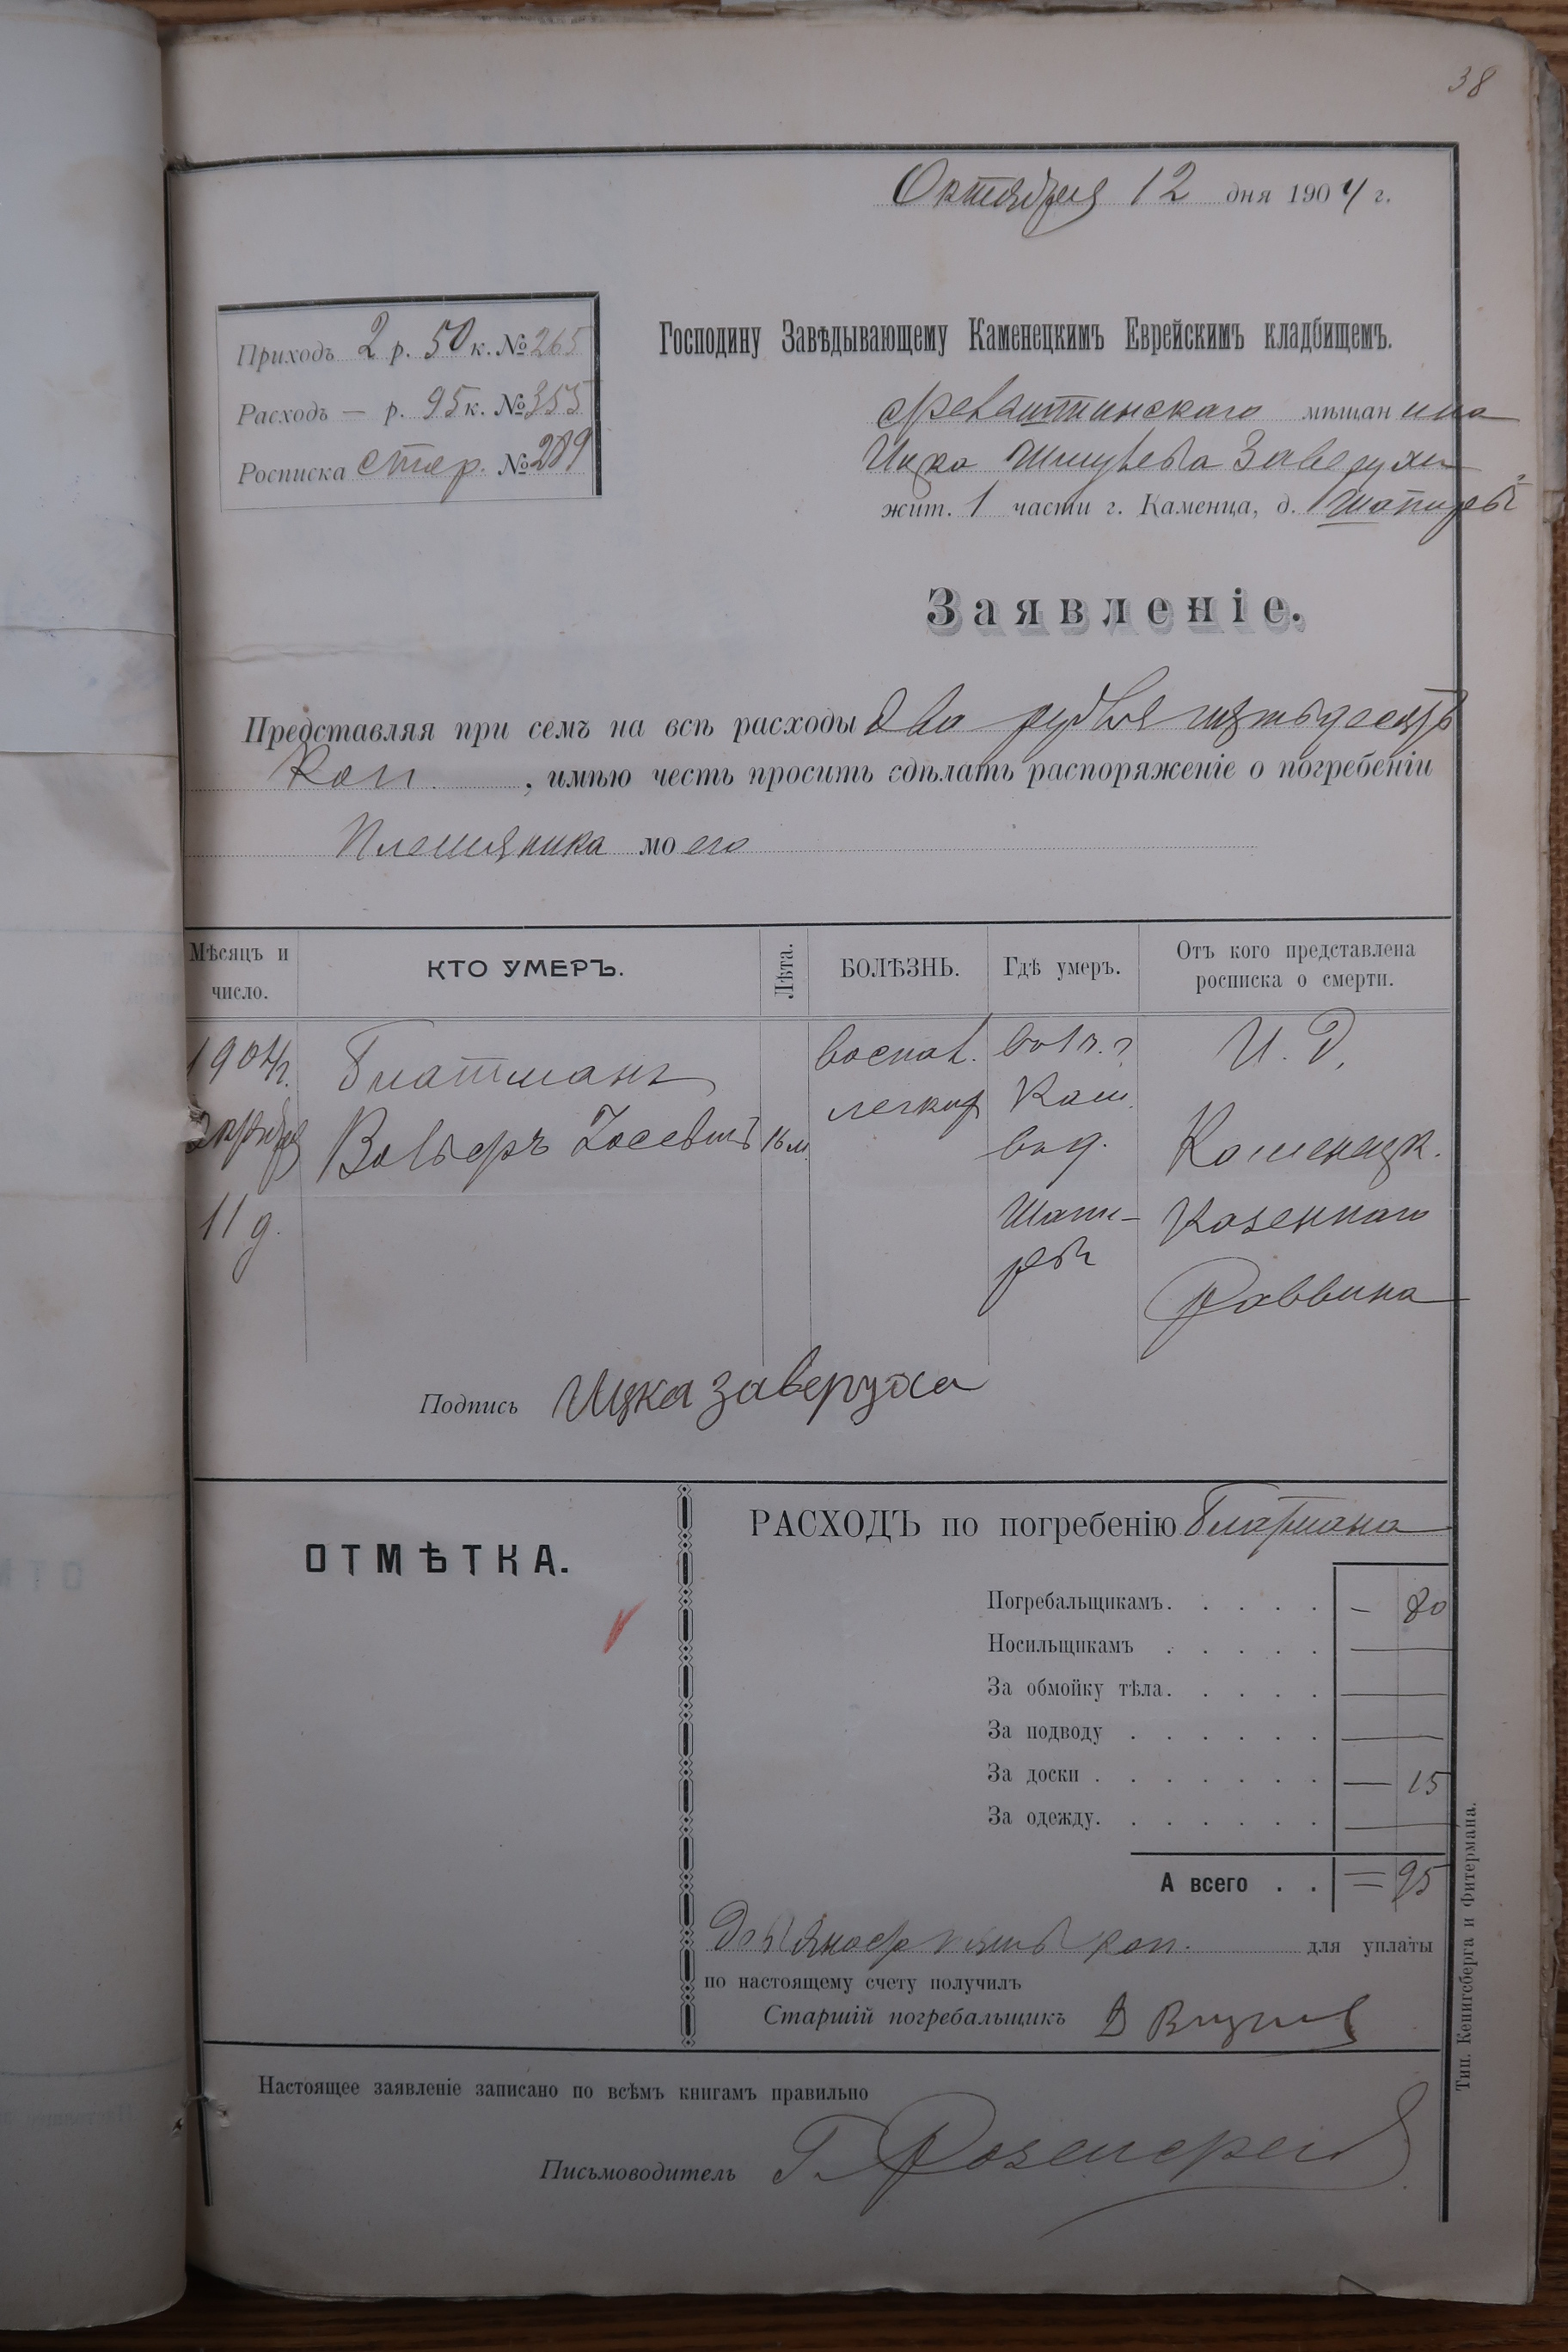 38
Октября 12 дня 1904 г.
Приходъ 2 р. 50 к. № 265
Расходъ — р. 95 к. № 355
Росписка стар. № 289
Господину Завѣдывающему Каменецкимъ Еврейскимъ кладбищемъ.
мѣщанина
Ицка Шмулева Заверухи
жит. 1 части г. Каменца, д. Шапиры
Заявленіе.
Представляя при семъ на всѣ расходы два рубля пятьдесятъ
коп. , имѣю честь просить сдѣлать распоряженіе о погребеніи
Племянника моего
Мѣсяцъ и число.
КТО УМЕРЪ.
Лѣта.
БОЛѢЗНЬ.
Гдѣ умеръ.
Отъ кого представлена росписка о смерти.
1904 г. Октября 11 д.
Глатманъ
Вольфъ
воспал. легких
Кам. въ д. Шапиры
И. Д. Каменецк. Казеннаго Раввина
Подпись Ицка заверуха
ОТМѢТКА.
РАСХОДЪ по погребенію Глатмана
Погребальщикамъ. . . . . — 80
Носильщикамъ . . . . . —
За обмойку тѣла. . . . . —
За подводу . . . . . . —
За доски . . . . . . . — 15
За одежду. . . . . . . —
А всего . . = 95
Девяносто пять коп. для уплаты
по настоящему счету получилъ
Старшій погребальщикъ
Настоящее заявленіе записано по всѣмъ книгамъ правильно
Письмоводитель Г.
Тип. Кенигсберга и Фитермана.